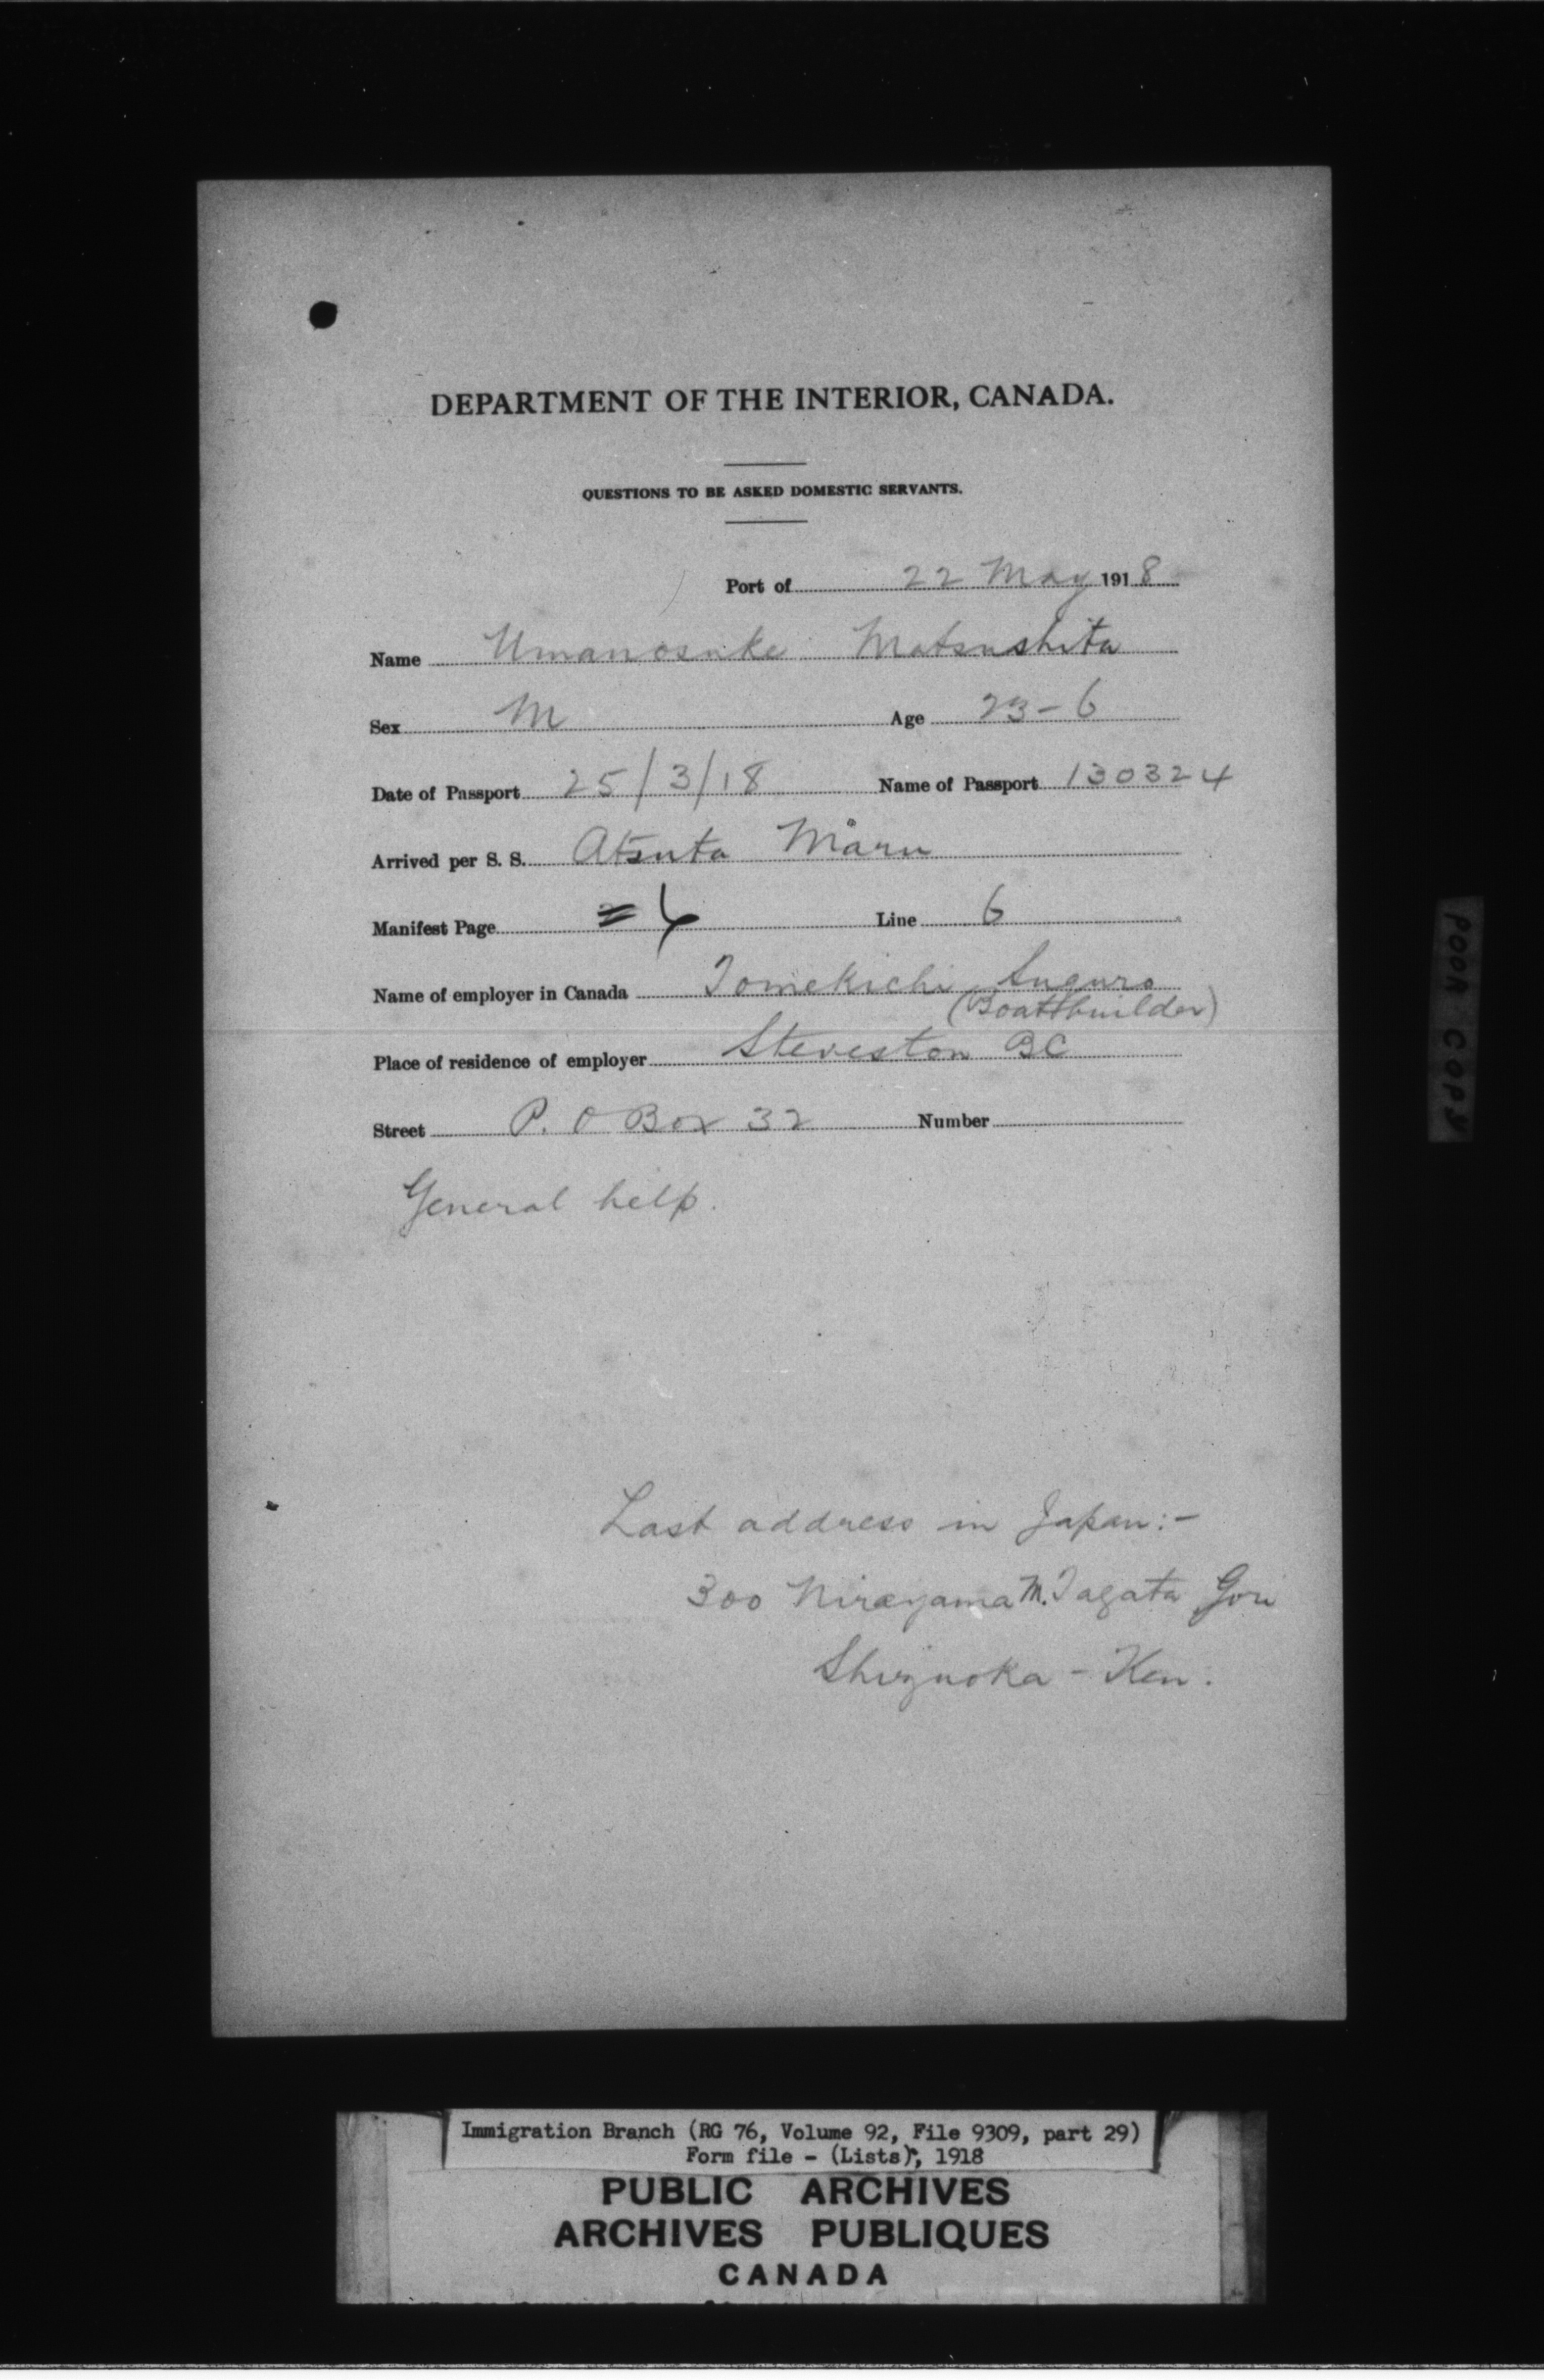 DEPARTMENT OF THE INTERIOR, CANADA.
QUESTIONS TO BE ASKED DOMESTIC SERVANTS.
Port of 22 May 1918
Name Umanosuke Matsushita
Sex M Age 23-6
Date of Passport 25/3/18 Name of Passport 130324
Arrived per S. S. Atsuta Maru
Manifest Page = 6 Line 6
Name of employer in Canada Tomekichi Suguro
(Boatbuilder)
Place of residence of employer Steveston BC
Street P. O Box 32 Number
General help.
Last address in Japan:-
300 Nirayama M. Tagata Gori
Shizuoka - Ken.
POOR COPY
Immigration Branch (RG 76, Volume 92, File 9309, part 29)
Form file - (Lists), 1918
PUBLIC ARCHIVES
ARCHIVES PUBLIQUES
CANADA